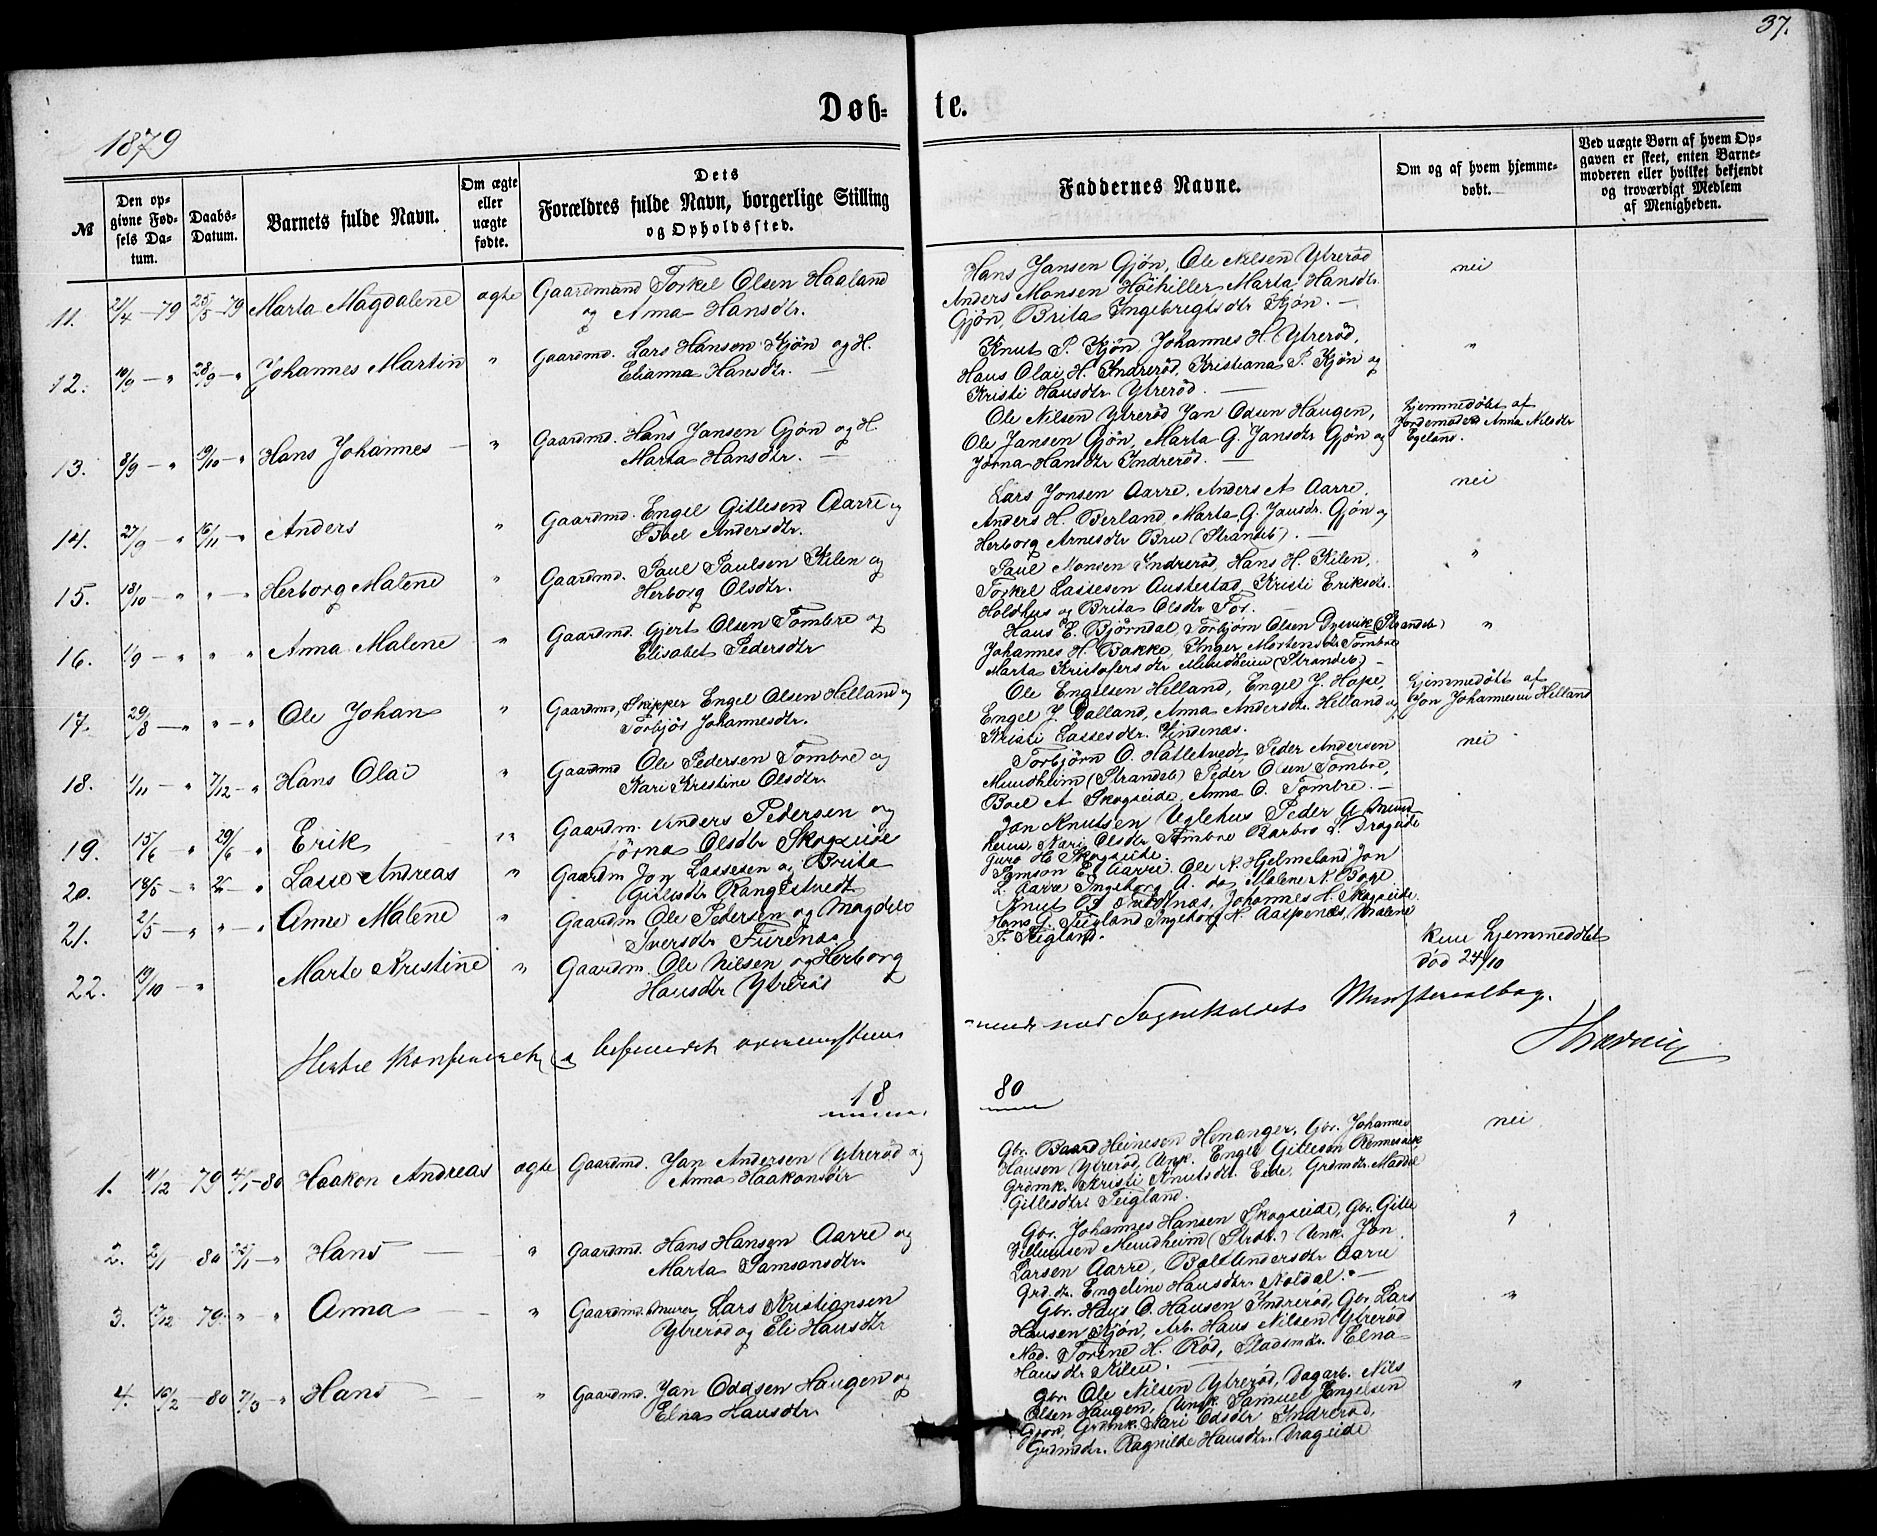 37.
Døb- te.
1879
№
Den op-
givne Fød-
sels Da-
tum.
Daabs-
Datum.
Barnets fulde Navn.
Om ægte
eller
uægte
fødte.
Dets
Forældres fulde Navn, borgerlige Stilling
og Opholdssted.
Faddernes Navne.
Om og af hvem hjemme-
døbt.
Ved uægte Børn af hvem Op-
gaven er skeet, enten Barne-
moderen eller hvilket bekjendt
og troværdigt Medlem
af Menigheden.
11. 21/4 - 79 25/5 - 79 Marta Magdalene ægte Gaardmand Torkel Olsen Haaland
og Anna Hansdtr.
Hans Jansen Gjøn, Ole Nilsen Ytrerød
Anders Monsen Høihiller Marta Hansdtr
Gjøn, Brita Ingebrigtsdtr Kjøn. -
nei
12. 10/9 - " 28/9 - " Johannes Martin " Gaardmd. Lars Hansen Kjøn og H.
Elianna Hansdtr. -
Knut P. Kjøn, Johannes H. Ytrerød,
Hans Olai H. Indrerød, Kristiana P. Kjøn og
Kristi Hansdtr Ytrerød. -
"
13. 8/9 - " 19/10 - " Hans Johannes - " Gaardmd. Hans Jansen Gjøn og H.
Marta Hansdtr. -
Ole Nilsen Ytrerød Jan Odsen Haugen,
Ole Jansen Gjøn, Marta G. Jansdtr Gjøn og
Jørna Hansdtr Indrerød. -
hjemmedøbt af
Jordemoderen Anna Nilsdtr
Egeland.
14. 27/9 - " 16/11 - " Anders " Gaardmd. Engel Gitlesen Aarre og
Boel Andersdtr.
Lars Jonsen Aarre, Anders A Aarre,
Anders H. Berland, Marta G. Jansdr. Gjøn og
Herborg Arnesdtr Bru (Strandeb). -
nei
15. 18/10 - " " - " Herborg Malene " Gaardmd. Paul Paulsen Kilen og
Herborg Olsdtr.
Paul Monsen Indrerød, Hans H. Kilen,
Torkel Lassesen Austestad, Kristi Eriksdtr.
Holdhus og Brita Olsdtr Tør.
"
16. 1/9 - " " " Anna Malene " Gaardmd. Gjert Olsen Tombre og
Elisabet Pedersdtr
Hans E. Bjørndal, Torbjørn Olsen Dysvik (Strandeb)
Johannes H. Bakke, Inger Mortensdtr Tombre
Marta Kristofersdtr Mundheim (Strandeb) -
"
17. 29/8 - " " - " Ole Johan " Gaardmd, Skipper Engel Olsen Helland og
Torbjør Johannesdtr.
Ole Engelsen Helland, Engel J. Hope,
Engel J. Dalland, Anna Andersdtr. Helland og
Kristi Lassesdtr. Vindenæs.
hjemmedøbt af
Jon Johannesen Helland
18. 1/11 - " 7/12 - " Hans Olai " Gaardmd Ole Pedersen Tombre og
Kari Kristine Olsdtr.
Torbjørn O. Hatletvedt, Peder Andersen
Mundheim (Strandeb) Peder Olsen Tombre,
Boel A Skogseide, Anna O. Tombre. -
nei
19. 15/6 " 29/6 - " Erik - " Gaardm. Anders Pedersen og
Jørna Olsdtr Skogseide
Jon Knutsen Uglehus Peder A Mund
heim, Kari Olsdtr Tombre Barbro L. Drageide
Guro H. Skogseide.
20. 18/5 - " 25 - " Lasse Andreas " Gaardm Jon Lassesen og Brita
Gitlesdtr Rangestvedt
Samson E. Aarre. Ole N. Hjelmeland Jon
L. Aarre Ingeborg A. do Malene N. Boge
21. 2/5 - " " - " Anne Malene " Gaardm Ole Pedersen og Magdele
Iversdtr Furenæs.
Hans G. Teigland Ingeborg H. Aaspenæs, Malene
F. Teigland.
22. 19/10 - " Marte Kristine " Gaardm. Ole Nilsen og Herborg
Hansdtr Ytrerød
kun hjemmedøbt
død 24/10
18 80
1. 11/12 - 79 4/1 - 80 Haakon Andreas ægte Gaardmd. Jan Andersen Ytrerød og
Anna Haakonsdtr
Gbr. Baard Heinesen Henanger, Gbr. Johannes
Hansen Ytrerød, Unk. Engel Gitlesen Rennesvik
Grdmk. Kristi Knutsdtr. Eide, Grdmdr. Maddel
Gitlesdtr. Teigland.
nei
2. 2/1 - 80 25/1 - " Hans - " Gaardmd. Hans Hansen Aarre og
Marta Samsonsdtr.
Gbr. Johannes Hansen Skogseide, Gbr. Gitle
Villumsen Mundheim (Strdb.) Unk. Jon
Larsen Aarre, Boel Andersdtr Aarre
Grd.dr. Engeline Hansdtr. Noldal. -
"
3. 17/12 79 " - " Anna - " Gaardmd. Murer Lars Kristiansen
Ytrerød og Eli Hansdtr
Gbr. Hans O. Hansen Indrerød, Gbr. Lars
Hansen Kjøn, Arb. Hans Nilsen Ytrerød
Mad. Torine H. Rød, Pladsmdr. Elna
Hansdtr Kilen. -
"
4. 16/2 - 80 7/3 - " Hans - " Gaardmd. Jan Oddsen Haugen og
Elna Hansdtr.
Gbr. Ole Nilsen Ytrerød, Dagarb. Nils
Olsen Haugen, Ungk. Samuel Engelsen
Gjøn, Grdmk. Kari Odsdtr Indrerød,
Grdmdtr. Ragnilde Hansdtr. Drageide
"